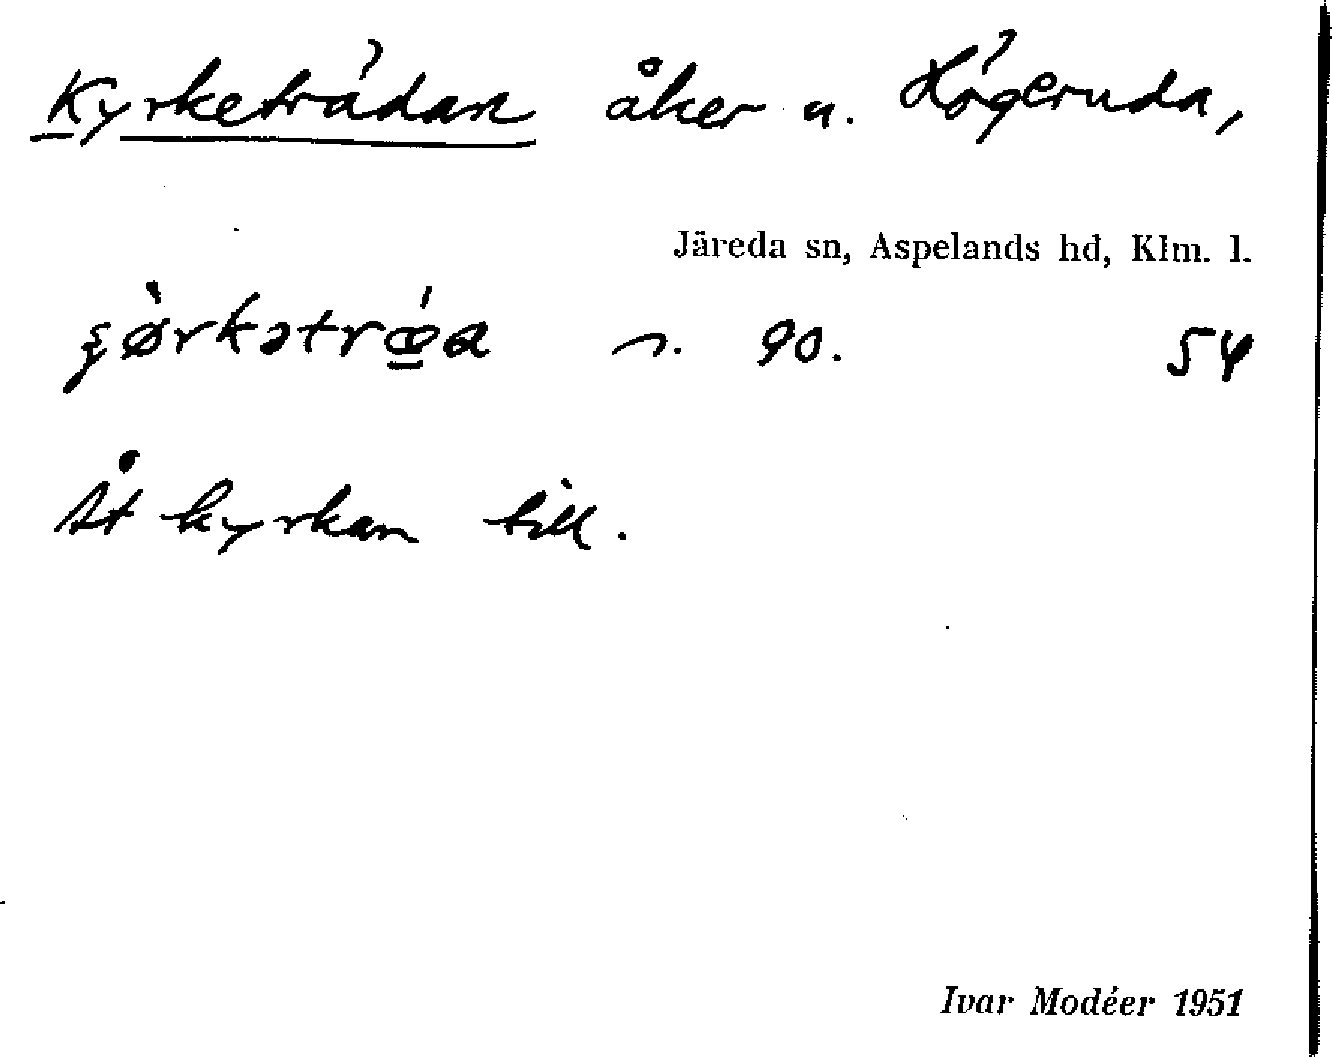 Kyrketrädan åker u. Högeruda,
Järeda sn, Aspelands hd, Klm. l.
90. 54
Åt kyrkan till.
Ivar Modéer 1951